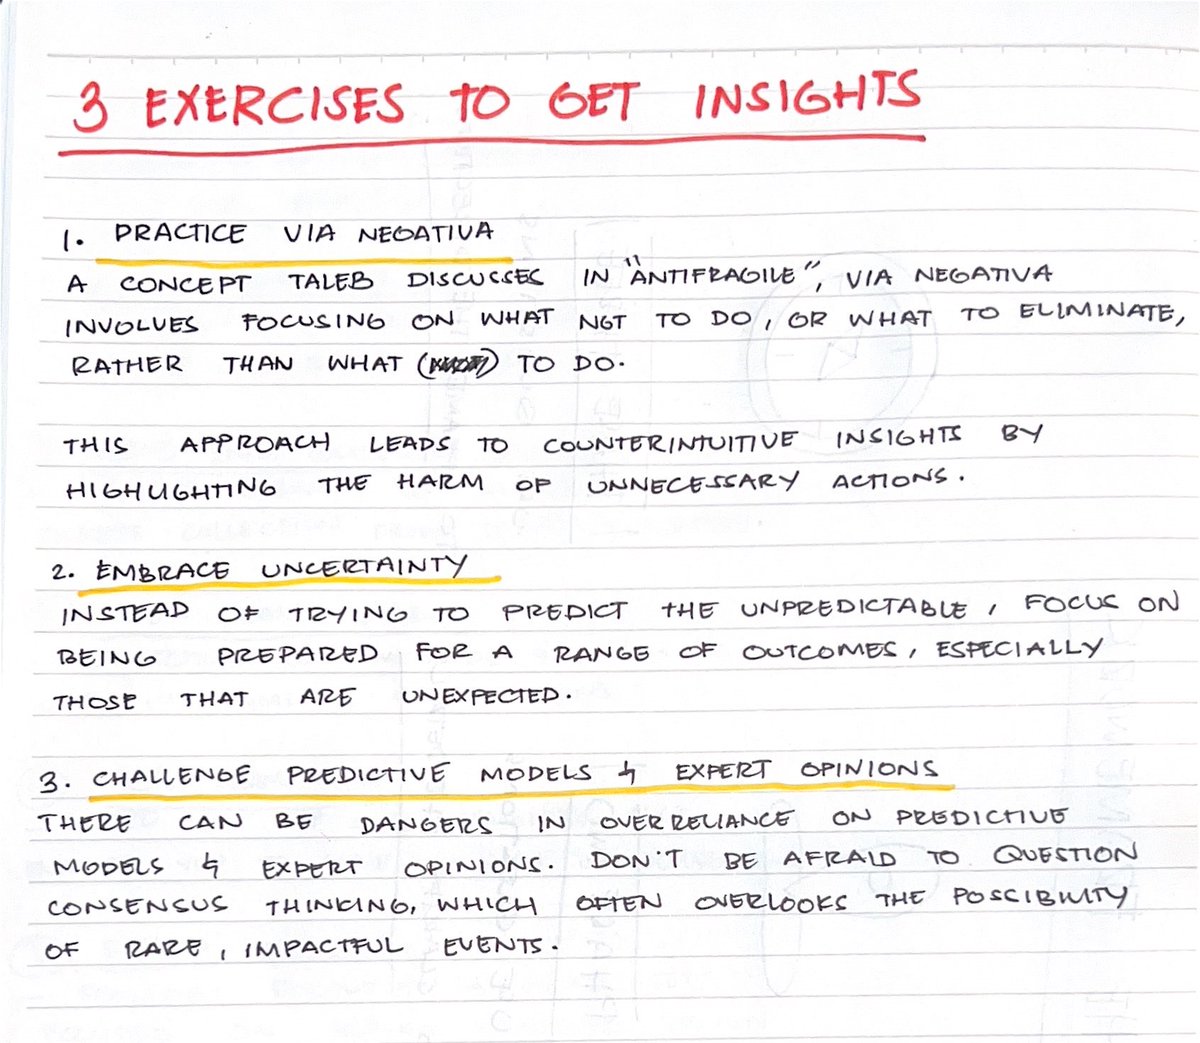 3 EXERCISES TO GET INSIGHTS
1. PRACTICE VIA NEGATIVA
A CONCEPT TALEB DISCUSSES IN "ANTIFRAGILE", VIA NEGATIVA
INVOLVES FOCUSING ON WHAT NOT TO DO, OR WHAT TO ELIMINATE,
RATHER THAN WHAT () TO DO.
THIS APPROACH LEADS TO COUNTERINTUITIVE INSIGHTS BY
HIGHLIGHTING THE HARM OF UNNECESSARY ACTIONS.
2. EMBRACE UNCERTAINTY
INSTEAD OF TRYING TO PREDICT THE UNPREDICTABLE, FOCUS ON
BEING PREPARED FOR A RANGE OF OUTCOMES, ESPECIALLY
THOSE THAT ARE UNEXPECTED.
3. CHALLENGE PREDICTIVE MODELS & EXPERT OPINIONS
THERE CAN BE DANGERS IN OVERRELIANCE ON PREDICTIVE
MODELS & EXPERT OPINIONS. DON'T BE AFRAID TO QUESTION
CONSENSUS THINKING, WHICH OFTEN OVERLOOKS THE POSSIBILITY
OF RARE, IMPACTFUL EVENTS.